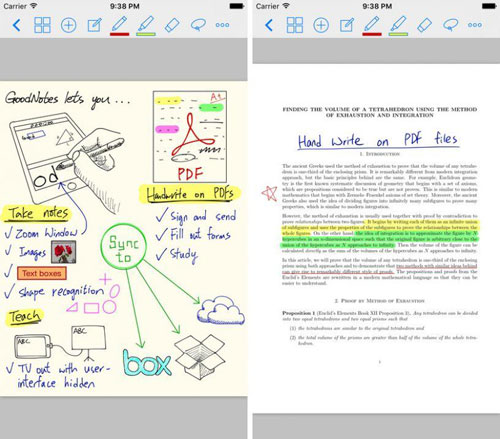 Carrier 9:38 PM
GoodNotes lets you...
A+
PDF
Handwrite on PDFs
✓ Sign and send
✓ Fill out forms
✓ Study
Take notes
✓ Zoom Window
✓ Images
✓ Text boxes
✓ Shape recognition
Sync to
Teach
ABC
ABC
✓ TV out with user-
interface hidden
box
Carrier 9:38 PM
FINDING THE VOLUME OF A TETRAHEDRON USING THE METHOD
OF EXHAUSTION AND INTEGRATION
Hand Write on PDF files
1. INTRODUCTION
The ancient Greeks used the method of exhaustion to prove that the volume of any tetrahe-
dron is one-third of the enclosing prism. It is remarkably different from modern integration
approach, but the basic principles behind are the same. For example, Euclidean geome-
try is the first known systematic discussion of geometry that begins with a set of axioms,
which are propositions considered to be true but are not proven. This is similar to modern
mathematics that begins with Zermelo Fraenkel axioms of set theory. Moreover, the ancient
Greeks also used the idea of dividing figures into infinitely many subfigures to prove many
properties, which is similar to modern integration.
However, the method of exhaustion is usually used together with proof by contradiction to
prove relationships between two figures. It begins by writing each of them as an infinite union
of subfigures and uses the properties of the subfigures to prove the relationships between the
whole figures. On the other hand, the idea of integration is to approximate the figure by N
hypercubes in an n-dimensional space such that the original figure is arbitrary close to the
union of the hypercubes as N approaches to infinity. Then the volume of the figure can be
calculated directly as the sum of the volumes of the hypercubes as N approaches to infinity.
In this article, we will prove that the volume of any tetrahedron is one-third of the enclosing
prism using both approaches and to demonstrate that two methods with similar ideas behind
can give rise to remarkably different style of proofs. The propositions and proofs from the
Euclid's Elements are rewritten in a modern mathematical language so that they can be
easier to understand.
2. PROOF BY METHOD OF EXHAUSTION
Proposition 1 (Euclid's Elements Book XII Proposition 3). Any tetrahedron can be divided
into two equal tetrahedrons and two equal prisms such that
(1) the tetrahedrons are similar to the original tetrahedron and
(2) the total volume of the prisms are greater than half of the volume of the whole tetra-
hedron.